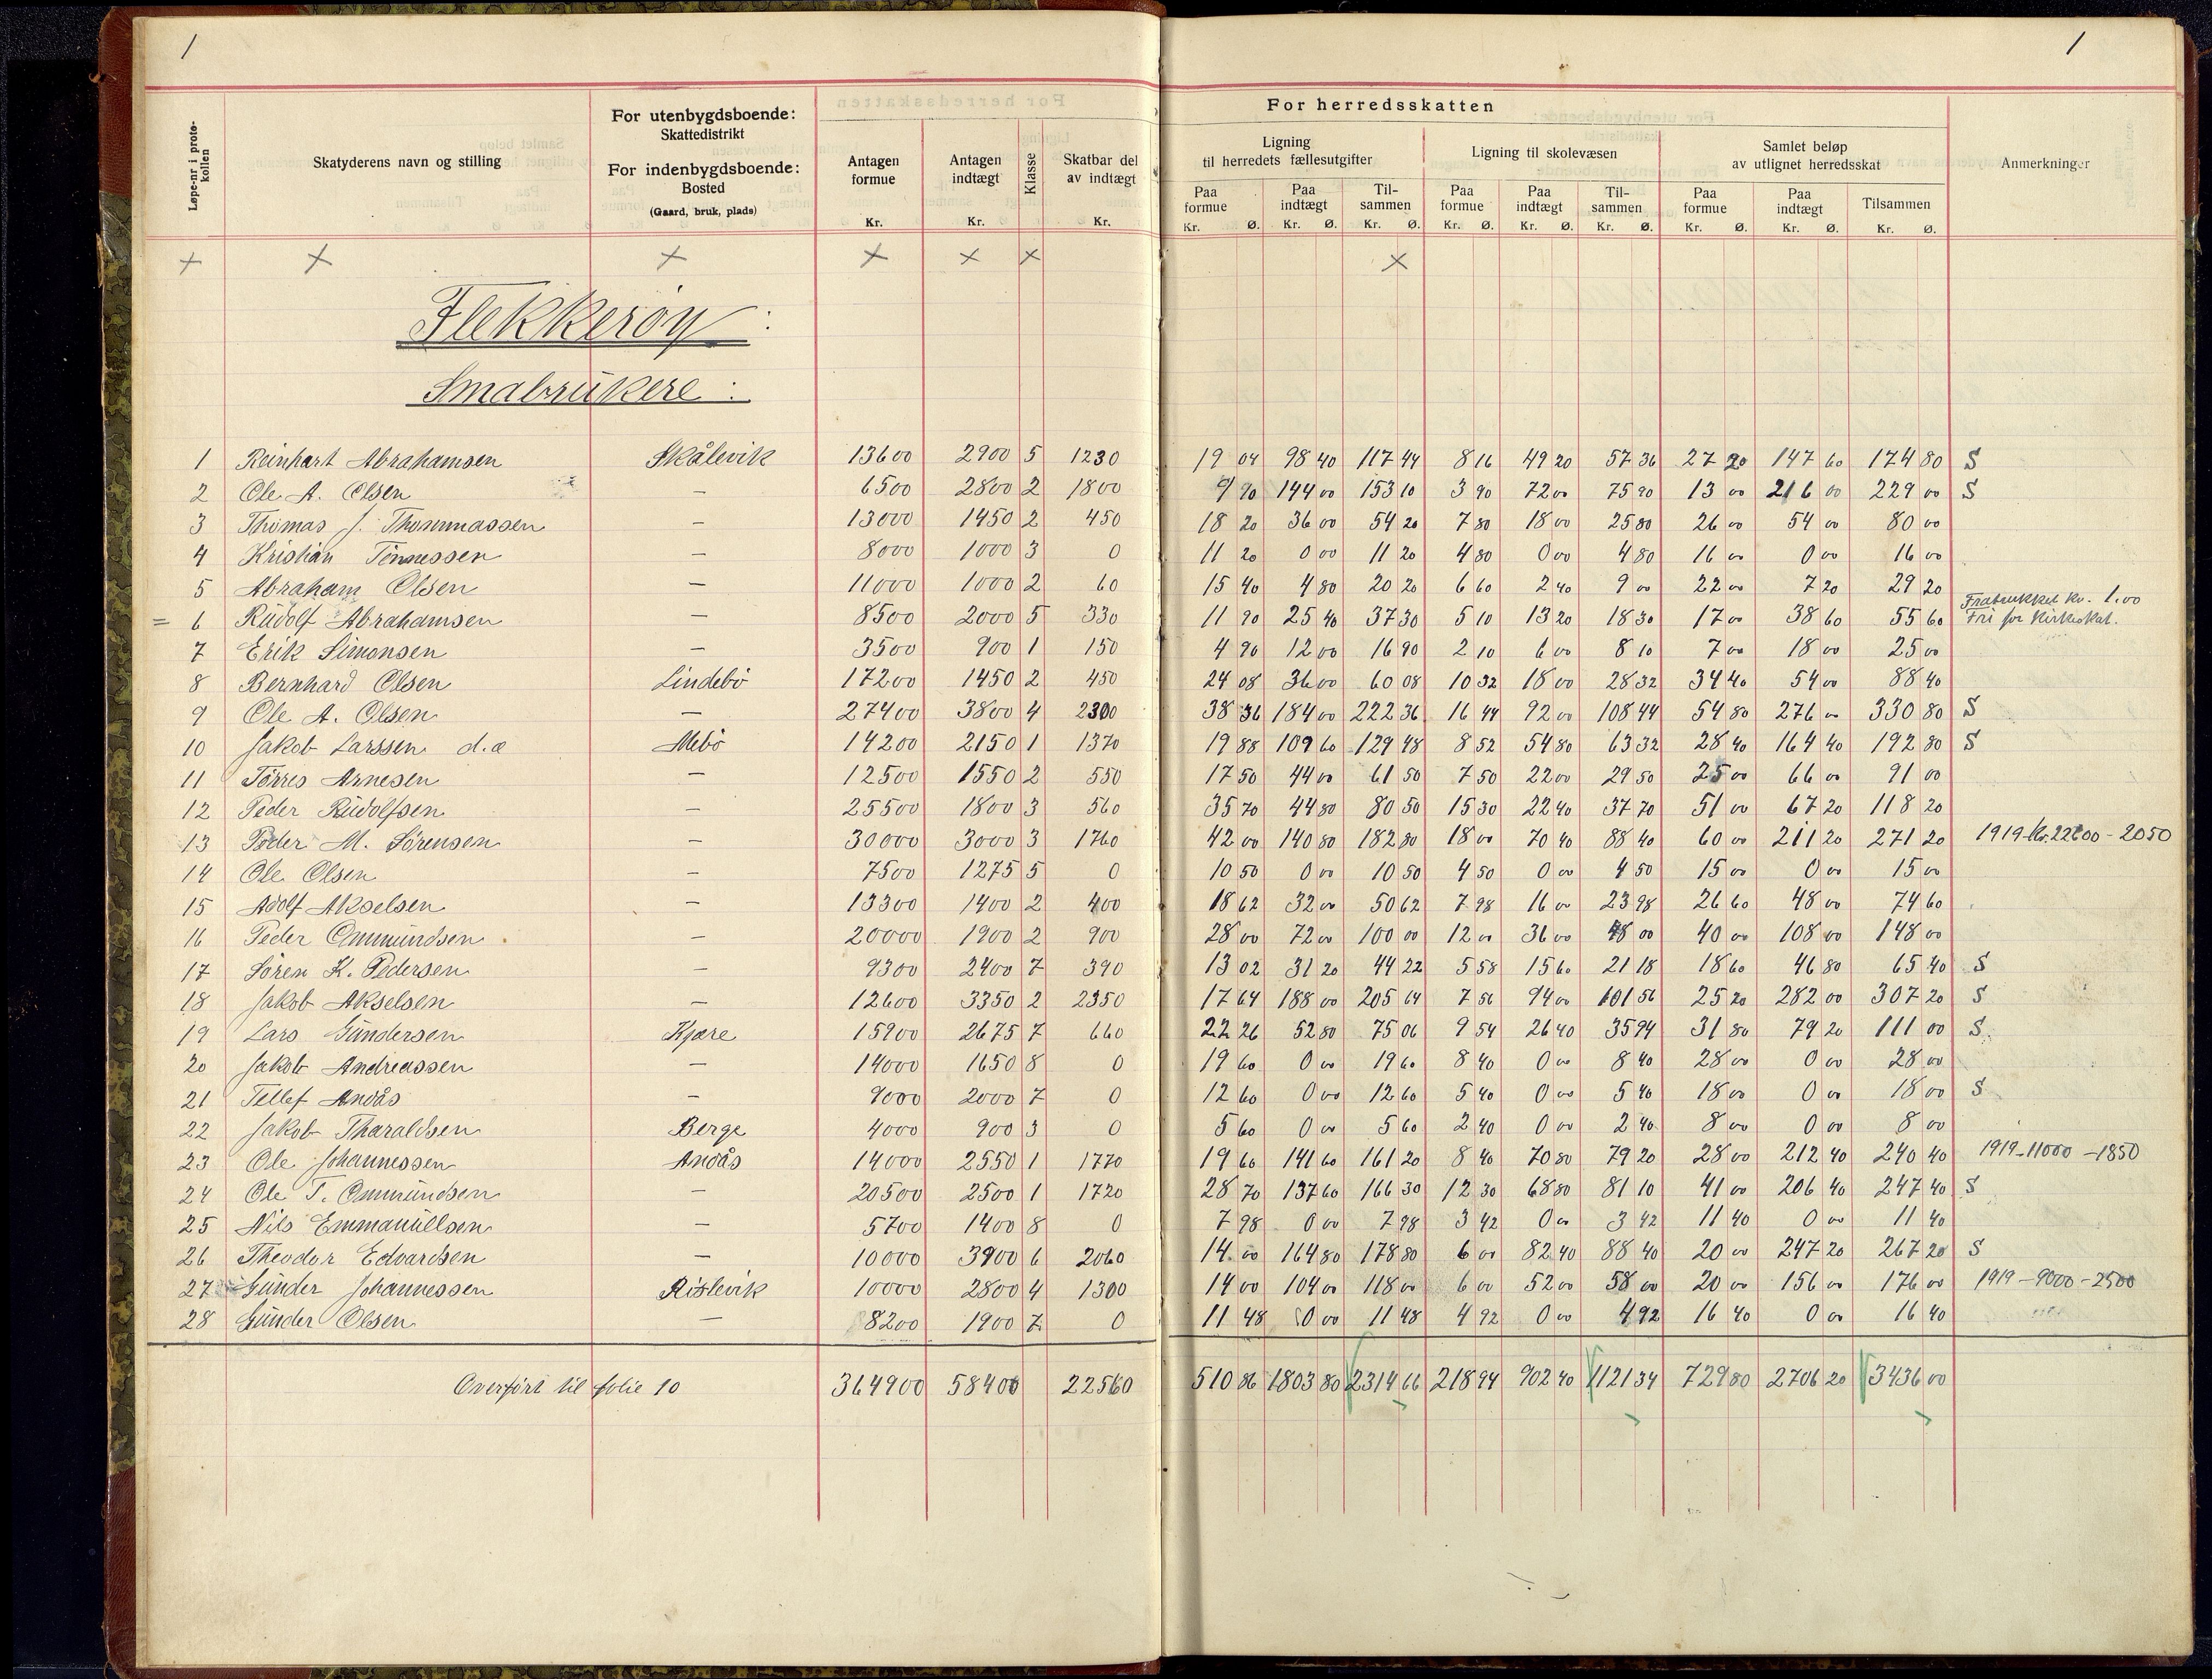 1 1
For herredsskatten
Løpe-nr i protokollen | Skatyderens navn og stilling | For utenbygdsboende: Skattedistrikt For indenbygdsboende: Bosted (Gaard, bruk, plads) | Antagen formue Kr. | Antagen indtægt Kr. | Klasse | Skatbar del av indtægt Kr. | Ligning til herredets fællesutgifter | Ligning til skolevæsen | Samlet beløp av utlignet herredsskat | Anmerkninger
Paa formue Kr. Ø. | Paa indtægt Kr. Ø. | Til-sammen Kr. Ø. | Paa formue Kr. Ø. | Paa indtægt Kr. Ø. | Til-sammen Kr. Ø. | Paa formue Kr. Ø. | Paa indtægt Kr. Ø. | Tilsammen Kr. Ø.
× × × × × × ×
Flekkerøy:
Småbrukere:
1 Reinhart Abrahamsen Skålevik 13600 2900 5 1230 19 04 98 40 117 44 8 16 49 20 57 36 27 20 147 60 174 80 S
2 Ole A. Olsen — 6500 2800 2 1800 9 10 144 00 153 10 3 90 72 00 75 90 13 00 216 00 229 00 S
3 Thomas J. Thommassen — 13000 1450 2 450 18 20 36 00 54 20 7 80 18 00 25 80 26 00 54 00 80 00
4 Kristian Tönnessen — 8000 1000 3 0 11 20 0 00 11 20 4 80 0 00 4 80 16 00 0 00 16 00
5 Abraham Olsen — 11000 1000 2 60 15 40 4 80 20 20 6 60 2 40 9 00 22 00 7 20 29 20
= 6 Rudolf Abrahamsen — 8500 2000 5 330 11 90 25 40 37 30 5 10 13 20 18 30 17 00 38 60 55 60 Fratrukket kr. 1.00 Fri for kirkeskat.
7 Erik Simonsen — 3500 900 1 150 4 90 12 00 16 90 2 10 6 00 8 10 7 00 18 00 25 00
8 Bernhard Olsen Lindebö 17200 1450 2 450 24 08 36 00 60 08 10 32 18 00 28 32 34 40 54 00 88 40
9 Ole A. Olsen — 27400 3800 4 2300 38 36 184 00 222 36 16 44 92 00 108 44 54 80 276 00 330 80 S
10 Jakob Larssen d.æ Mebö 14200 2150 1 1370 19 88 109 60 129 48 8 52 54 80 63 32 28 40 164 40 192 80 S
11 Törres Arnesen — 12500 1550 2 550 17 50 44 00 61 50 7 50 22 00 29 50 25 00 66 00 91 00
12 Peder Rudolfsen — 25500 1800 3 560 35 70 44 80 80 50 15 30 22 40 37 70 51 00 67 20 118 20
13 Peder M. Sörensen — 30000 3000 3 1760 42 00 140 80 182 80 18 00 70 40 88 40 60 00 211 20 271 20 1919-kr. 22600 - 2050
14 Ole Olsen — 7500 1275 5 0 10 50 0 00 10 50 4 50 0 00 4 50 15 00 0 00 15 00
15 Adolf Akselsen — 13300 1400 2 400 18 62 32 00 50 62 7 98 16 00 23 98 26 60 48 00 74 60
16 Peder Ommundsen — 20000 1900 2 900 28 00 72 00 100 00 12 00 36 00 48 00 40 00 108 00 148 00
17 Sören K. Pedersen — 9300 2400 7 390 13 02 31 20 44 22 5 58 15 60 21 18 18 60 46 80 65 40 S
18 Jakob Akselsen — 12600 3350 2 2350 17 64 188 00 205 64 7 56 94 00 101 56 25 20 282 00 307 20 S
19 Lars Gundersen Kjære 15900 2675 7 660 22 26 52 80 75 06 9 54 26 40 35 94 31 80 79 20 111 00 S
20 Jakob Andreassen — 14000 1650 8 0 19 60 0 00 19 60 8 40 0 00 8 40 28 00 0 00 28 00
21 Tellef Andås — 9000 2000 7 0 12 60 0 00 12 60 5 40 0 00 5 40 18 00 0 00 18 00 S
22 Jakob Tharaldsen Berge 4000 900 3 0 5 60 0 00 5 60 2 40 0 00 2 40 8 00 0 00 8 00
23 Ole Johannessen Andås 14000 2550 1 1770 19 60 141 60 161 20 8 40 70 80 79 20 28 00 212 40 240 40 1919-11000-1850
24 Ole T. Ommundsen — 20500 2500 1 1720 28 70 137 60 166 30 12 30 68 80 81 10 41 00 206 40 247 40 S
25 Nils Emmanuelsen — 5700 1400 8 0 7 98 0 00 7 98 3 42 0 00 3 42 11 40 0 00 11 40
26 Theodor Edvardsen — 10000 3900 6 2060 14 00 164 80 178 80 6 00 82 40 88 40 20 00 247 20 267 20 S
27 Gunder Johannessen Rislevik 10000 2800 4 1300 14 00 104 00 118 00 6 00 52 00 58 00 20 00 156 00 176 00 1919-9000-2500
28 Gunder Olsen — 8200 1900 7 0 11 48 0 00 11 48 4 92 0 00 4 92 16 40 0 00 16 40
Overført til folie 10 364900 58400 22560 510 86 1803 80 2314 66 218 94 902 40 1121 34 729 80 2706 20 3436 00